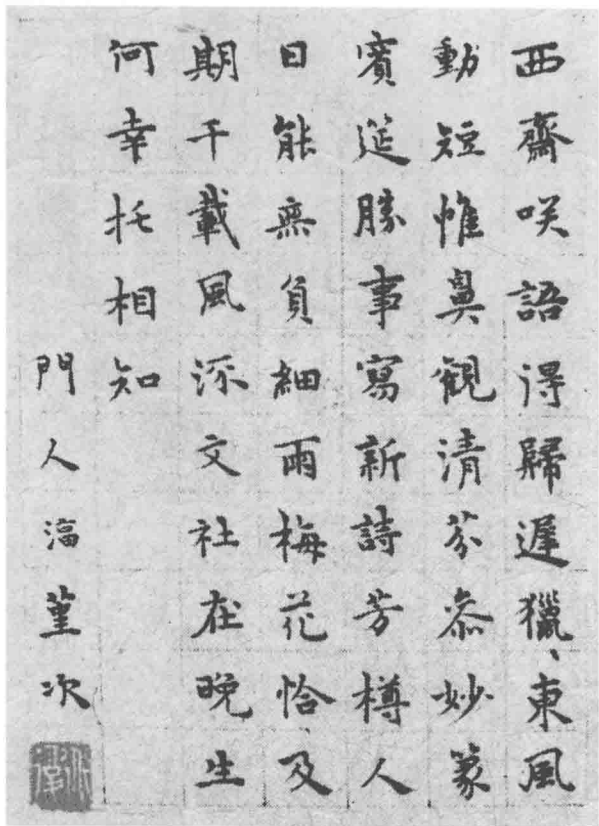 西齋咲語得歸遲獵〻東風
動短帷鼻觀清芬參妙篆
賓筵勝事寫新詩芳樽人
日能無負細雨梅花恰及
期千載風流文社在晚生
何幸托相知
門人福堇次